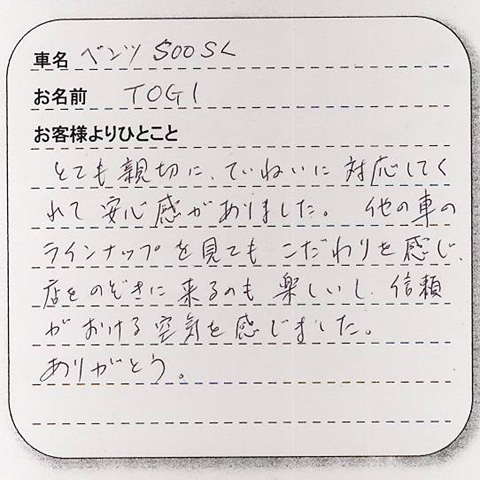 車名 ベンツ 500SL
お名前 TOGI
お客様よりひとこと
とても親切に、ていねいに対応してく
れて安心感がありました。他の車の
ラインナップを見てもこだわりを感じ、
店をのぞきに来るのも楽しいし、信頼
がおける空気を感じました。
ありがとう。